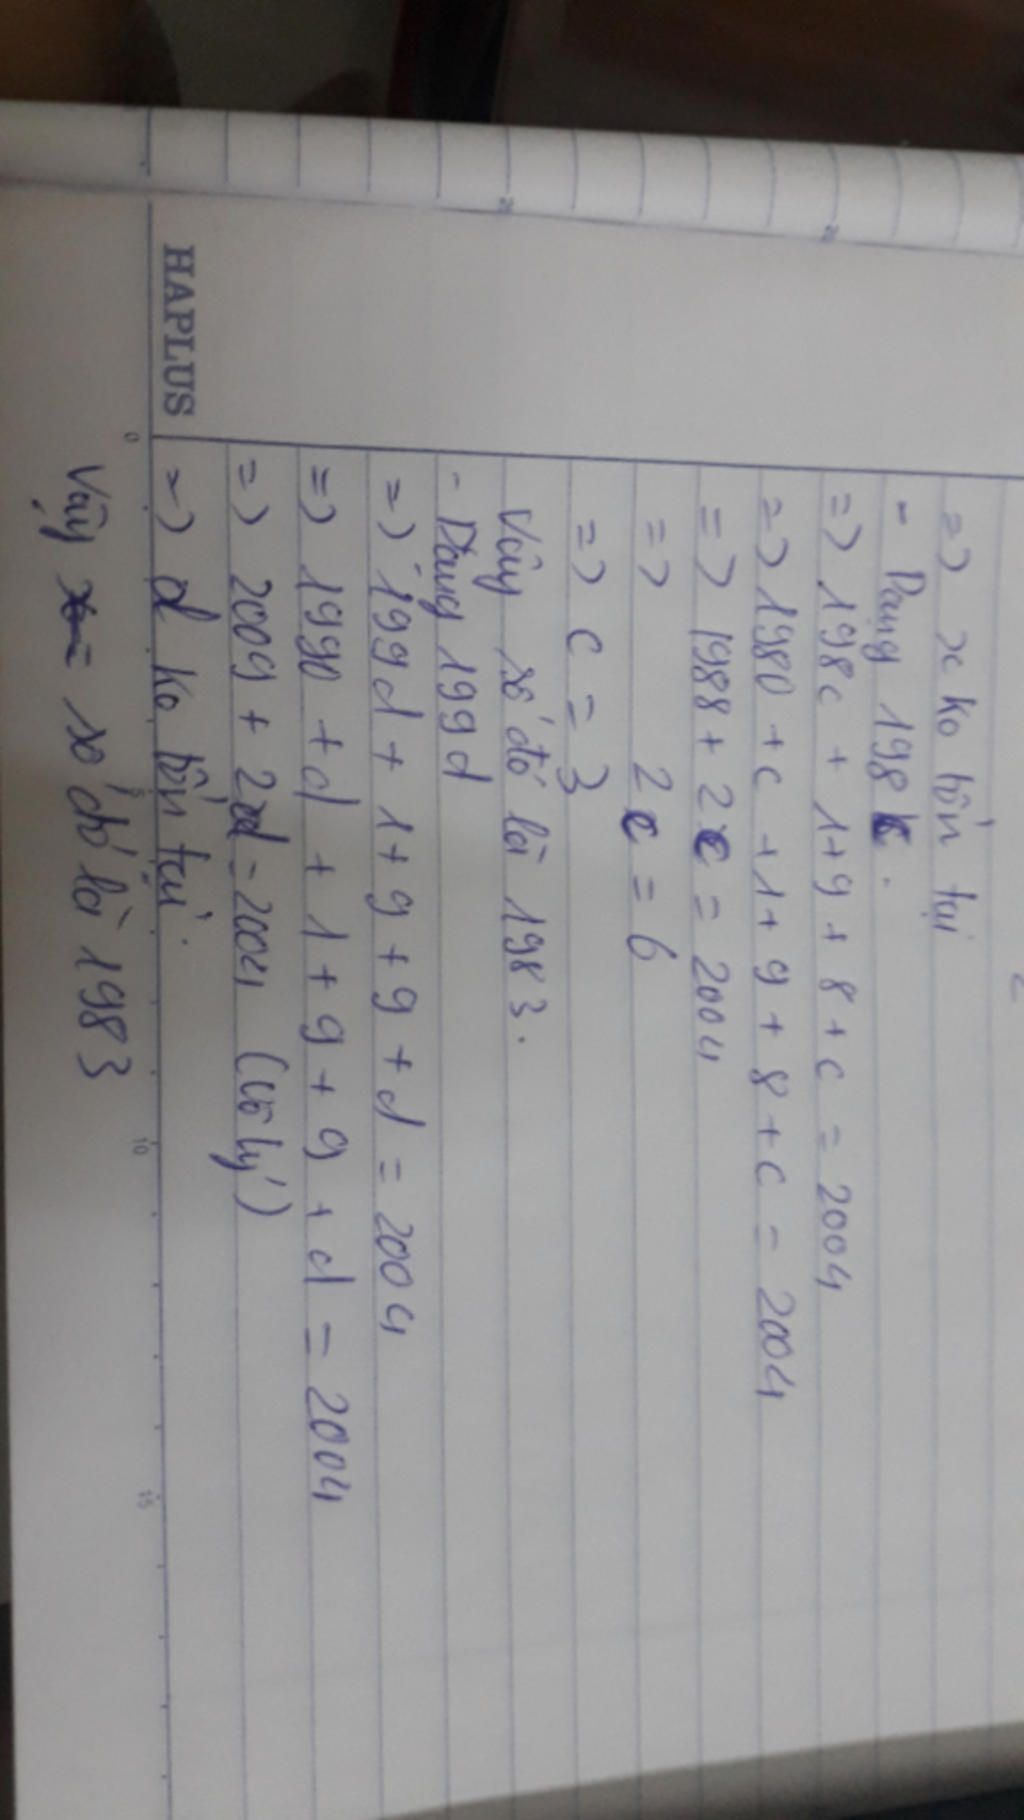 => x ko tồn tại
- Dạng 198c.
=> 198c + 1+9 + 8 + c = 2004
=> 1980 + c + 1 + 9 + 8 + c = 2004
=> 1988 + 2c = 2004
=> 2c = 6
=> c = 3
Vậy số đó là 1983.
- Dạng 199d
=> 199d + 1+ 9 + 9 + d = 2004
=> 1990 + d + 1 + 9 + 9 + d = 2004
=> 2009 + 2d = 2004 (vô lý)
=> d ko tồn tại.
Vậy số đó là 1983
HAPLUS
0
5
10
15